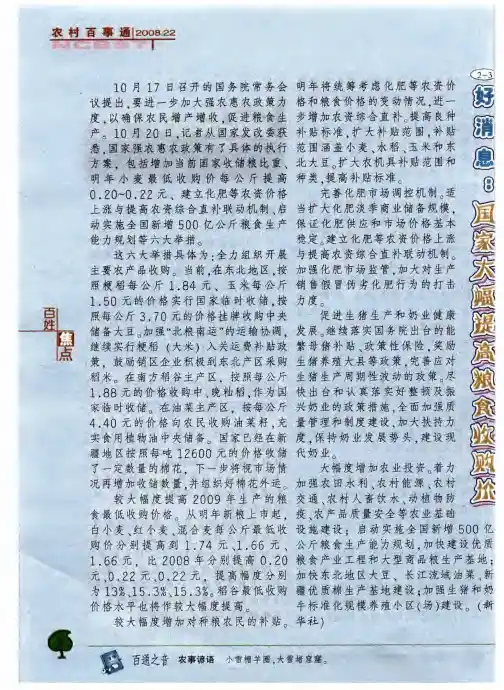 农村百事通 2008.22
NCBST
2-3
好消息：国家大幅提高粮食收购价
百姓
焦点
10月17日召开的国务院常务会
议提出,要进一步加大强农惠农政策力
度,以确保农民增产增收,促进粮食生
产。10月20日,记者从国家发改委获
悉,国家强农惠农政策有了具体的执行
方案，包括增加当前国家收储粮比重、
明年小麦最低收购价每公斤提高
0.20~0.22元、建立化肥等农资价格
上涨与提高农资综合直补联动机制、启
动实施全国新增500亿公斤粮食生产
能力规划等六大举措。
这六大举措具体为:全力组织开展
主要农产品收购。当前,在东北地区,按
照粳稻每公斤1.84元、玉米每公斤
1.50元的价格实行国家临时收储,按
照每公斤3.70元的价格挂牌收购中央
储备大豆。加强“北粮南运”的运输协调,
继续实行粳稻(大米)入关运费补贴政
策，鼓励销区企业积极到东北产区采购
稻米。在南方稻谷主产区，按照每公斤
1.88元的价格收购中、晚籼稻,作为国
家临时收储。在油菜主产区，按每公斤
4.40元的价格向农民收购油菜籽,充
实食用植物油中央储备。国家已经在新
疆地区按照每吨12600元的价格收储
了一定数量的棉花，下一步将视市场情
况再增加收储数量,并组织好棉花外运。
较大幅度提高2009年生产的粮
食最低收购价格。从明年新粮上市起,
白小麦、红小麦、混合麦每公斤最低收
购价分别提高到1.74元、1.66元、
1.66元，比2008年分别提高0.20
元、0.22元、0.22元，提高幅度分别
为13%、15.3%、15.3%。稻谷最低收购
价格水平也将作较大幅度提高。
较大幅度增加对种粮农民的补贴。
明年将统筹考虑化肥等农资价
格和粮食价格的变动情况,进一
步增加农资综合直补。提高良种
补贴标准,扩大补贴范围,补贴
范围涵盖小麦、水稻、玉米和东
北大豆。扩大农机具补贴范围和
种类,提高补贴标准。
完善化肥市场调控机制。适
当扩大化肥淡季商业储备规模,
保证化肥供应和市场价格基本
稳定。建立化肥等农资价格上涨
与提高农资综合直补联动机制。
加强化肥市场监管,加大对生产
销售假冒伪劣化肥行为的打击
力度。
促进生猪生产和奶业健康
发展。继续落实国务院出台的能
繁母猪补贴、政策性保险,奖励
生猪养殖大县等政策,完善应对
生猪生产周期性波动的政策。尽
快出台和认真落实好整顿及振
兴奶业的政策措施,全面加强质
量管理和制度建设,加大扶持力
度,保持奶业发展势头,建设现
代奶业。
大幅度增加农业投资。着力
加强农田水利、农村能源、农村
交通、农村人畜饮水、动植物防
疫、农产品质量安全等农业基础
设施建设；启动实施全国新增500亿
公斤粮食生产能力规划,加快建设优质
粮食产业工程和大型商品粮生产基地；
加快东北地区大豆、长江流域油菜、新
疆优质棉生产基地建设；加强生猪和奶
牛标准化规模养殖小区(场)建设。(新
华社)
百通之音 农事谚语 小雪棚羊圈,大雪堵窟窿。